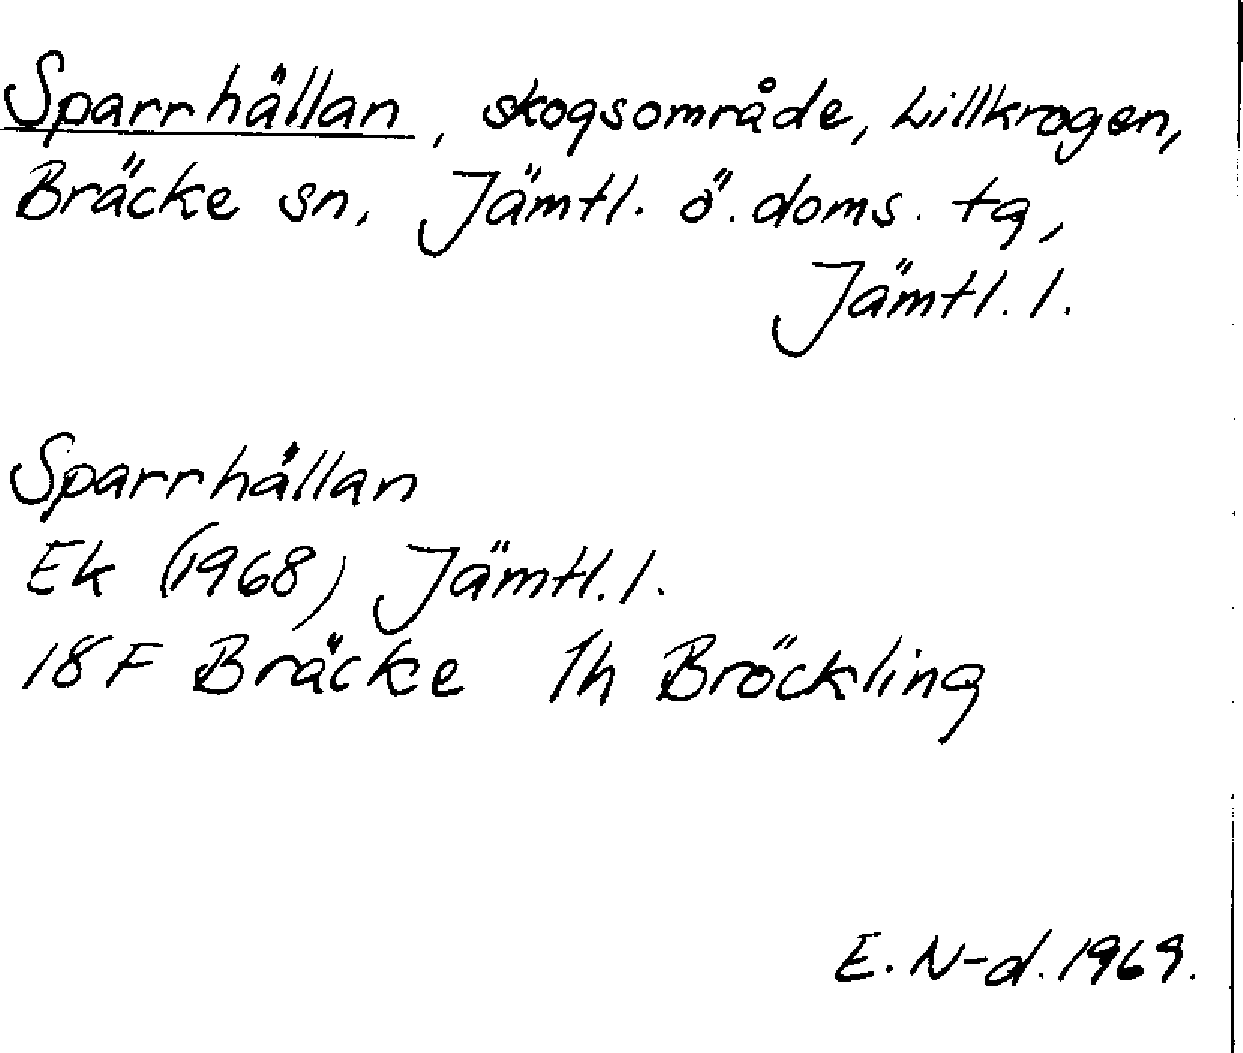 Sparrhällan, skogsområde, Lillkrogen,
Bräcke sn, Jämtl. ö. doms. tg,
Jämtl. l.
Sparrhällan
Ek (1968) Jämtl. l.
18F Bräcke 1h Bröckling
E. N-d. 1969.